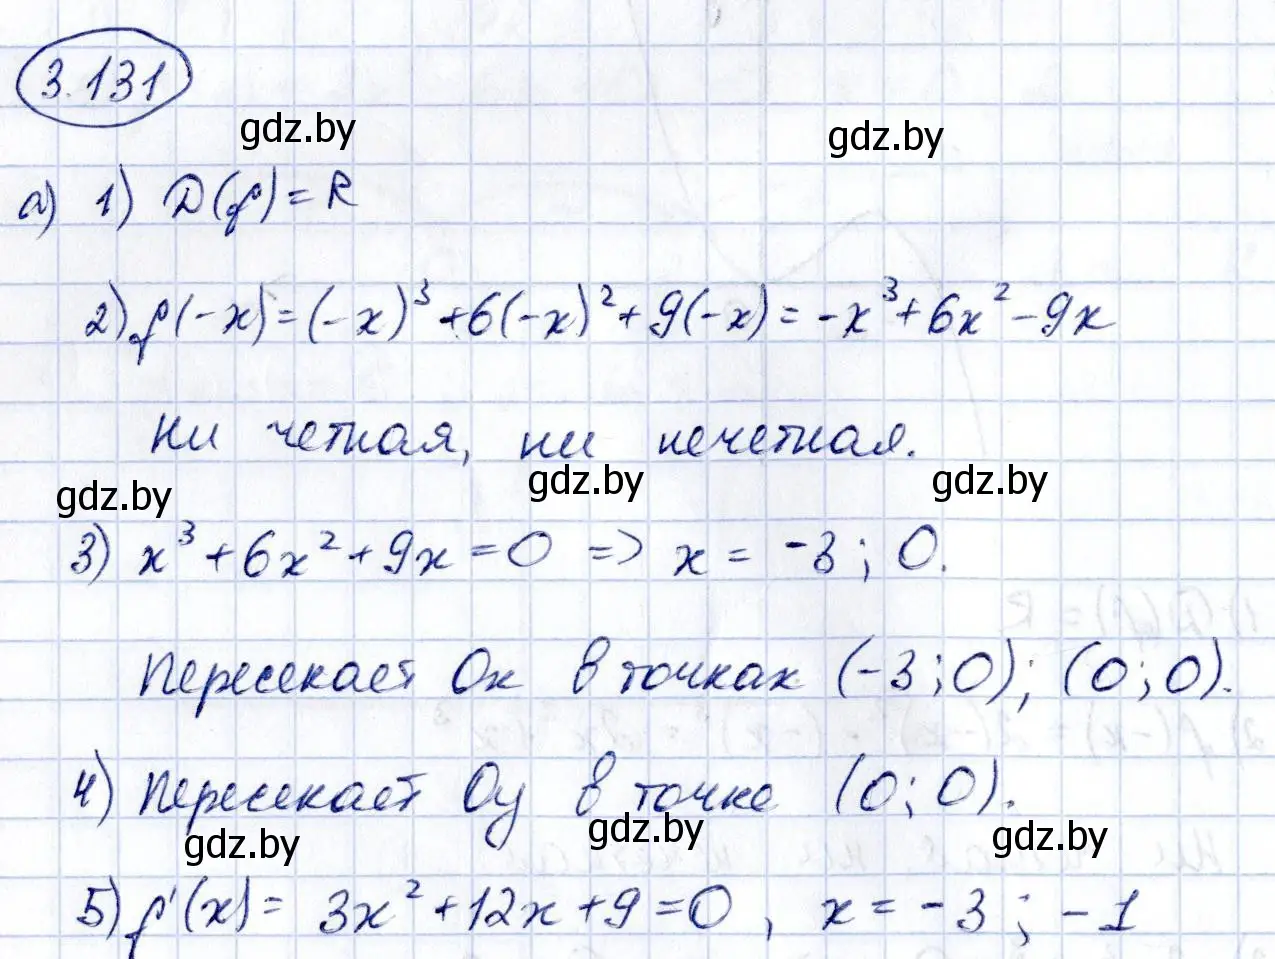 3.131
gdz.by gdz.by
а) 1) D(f) = R
2) f(-x) = (-x)³ + 6(-x)² + 9(-x) = -x³ + 6x² - 9x
Ни четная, ни нечетная.
gdz.by gdz.by gdz.by
3) x³ + 6x² + 9x = 0 => x = -3 ; 0.
Пересекает Ох в точках (-3 ; 0) ; (0 ; 0).
4) Пересекает Оу в точке (0 ; 0).
gdz.by gdz.by gdz.by
5) f'(x) = 3x² + 12x + 9 = 0 , x = -3 ; -1